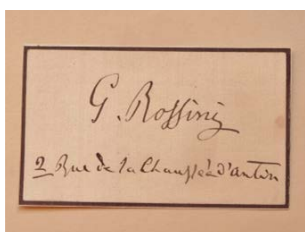 G. Rossini
2 Rue de la Chaussée d'antin